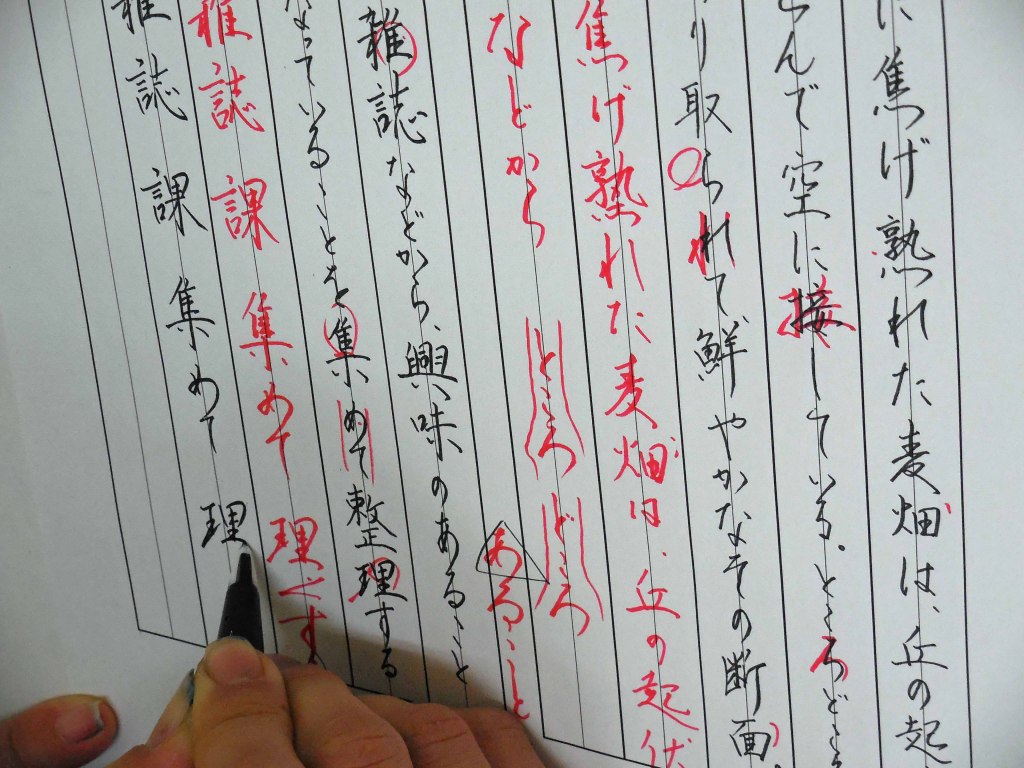 に焦げ熟れた麦畑は、丘の起
らんで空に接している。ところどころ
り取られて鮮やかなその断面
焦げ熟れた麦畑は、丘の起伏
ところ どころ
などから あること
雑誌などから、興味のあること
なっていることを集めて整理する
雑誌 課 集めて 理 する
雑誌 課 集めて 理